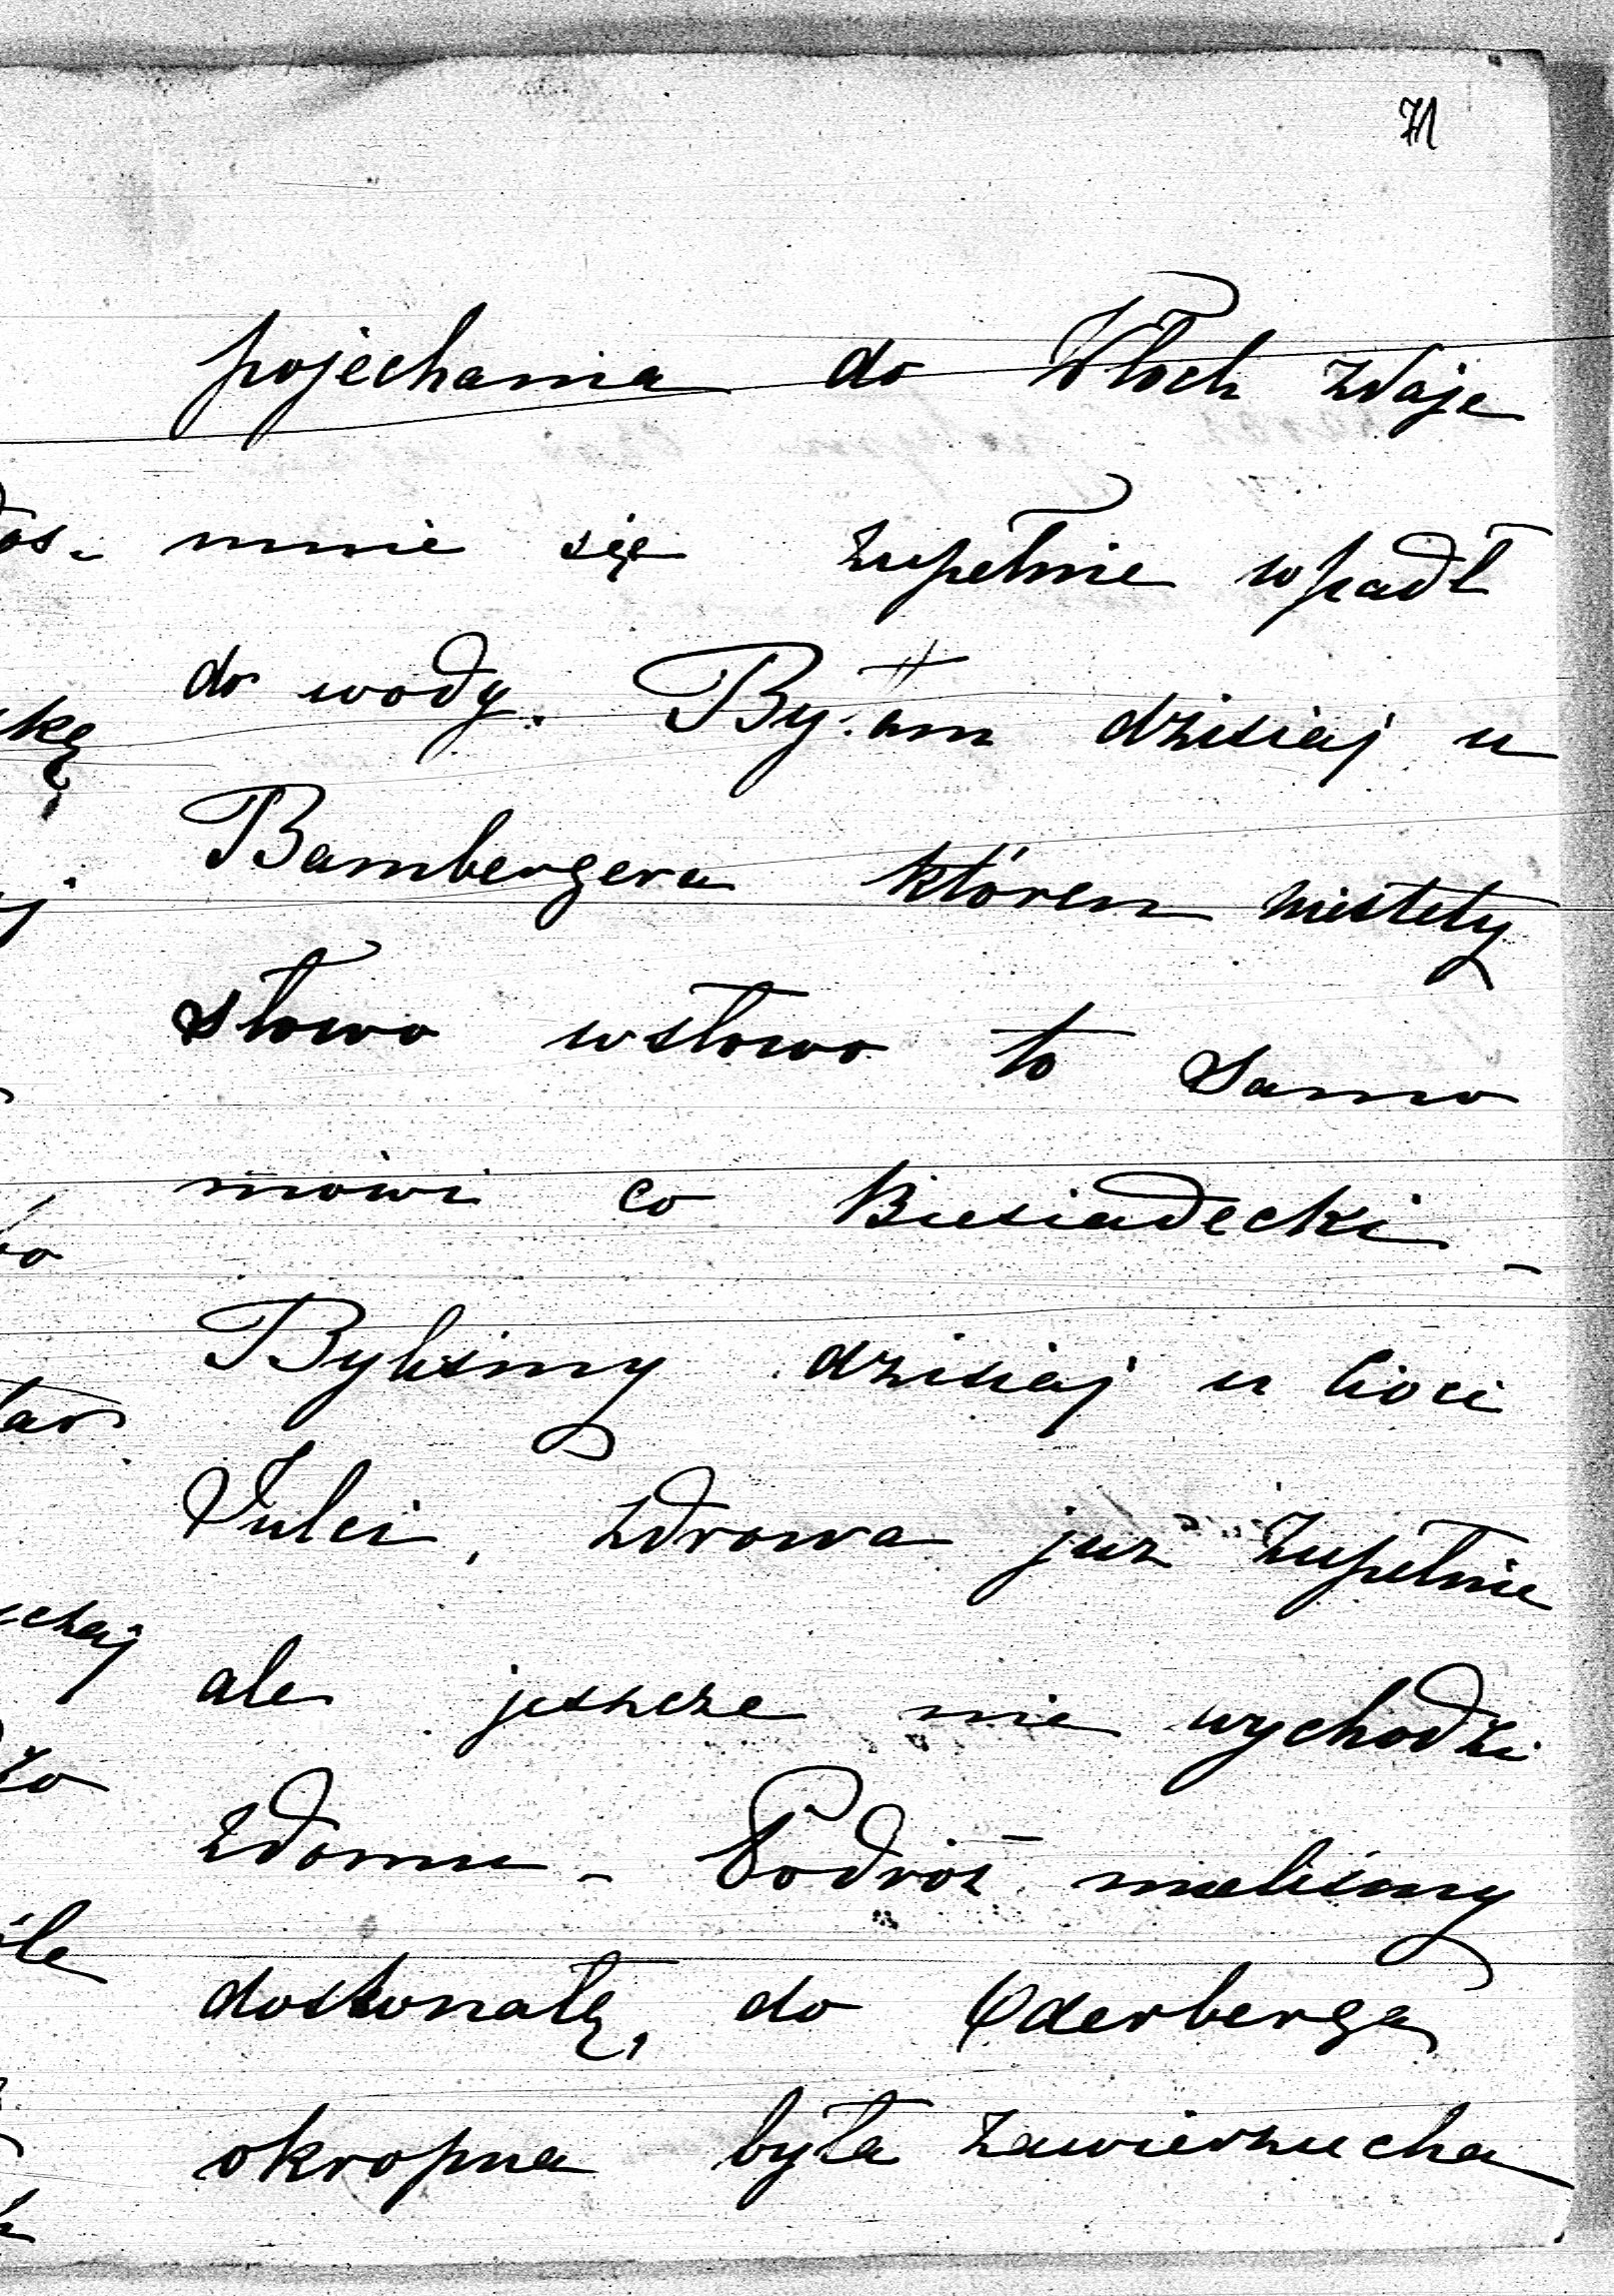 71
pojechania do Włoch zdaje
mnie się zupełnie wpadł
do wody. Byłam dzisiaj u
Bambergera którem niestety
słowo wsłowo to samo
mówi co Biesiadecki –
Byliśmy dzisiaj u cioci
Julci, zdrowa już zupełnie
ale jeszcze nie wychodzi
zdomu – Podróż mieliśmy
doskonałą, do Oderberga
okropna była zawierzucha